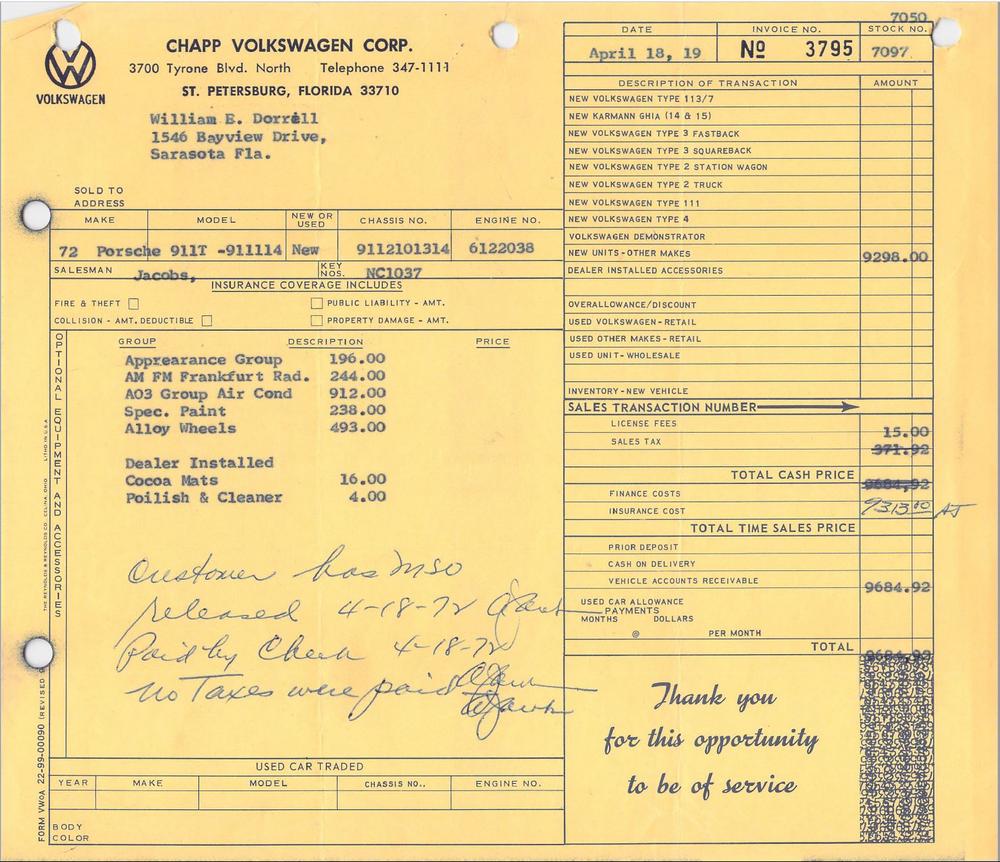 7050
CHAPP VOLKSWAGEN CORP.
3700 Tyrone Blvd. North Telephone 347-1111
ST. PETERSBURG, FLORIDA 33710
VOLKSWAGEN
DATE INVOICE NO. STOCK NO.
April 18, 19 No 3795 7097
William E. Dorrell
1546 Bayview Drive,
Sarasota Fla.
SOLD TO
ADDRESS
MAKE MODEL NEW OR USED CHASSIS NO. ENGINE NO.
72 Porsche 911T -911114 New 9112101314 6122038
SALESMAN Jacobs, KEY NOS. NC1037
INSURANCE COVERAGE INCLUDES
FIRE & THEFT PUBLIC LIABILITY - AMT.
COLLISION - AMT. DEDUCTIBLE PROPERTY DAMAGE - AMT.
OPTIONAL EQUIPMENT AND ACCESSORIES
GROUP DESCRIPTION PRICE
Apprearance Group 196.00
AM FM Frankfurt Rad. 244.00
AO3 Group Air Cond 912.00
Spec. Paint 238.00
Alloy Wheels 493.00
Dealer Installed
Cocoa Mats 16.00
Poilish & Cleaner 4.00
Customer has MSO
released 4-18-72
Paid by Check 4-18-72
no Taxes were paid
USED CAR TRADED
YEAR MAKE MODEL CHASSIS NO.. ENGINE NO.
BODY
COLOR
FORM VWOA 22-99-00090 (REVISED
THE REYNOLDS & REYNOLDS CO. CELINA OHIO LITHO IN U.S.A.
DESCRIPTION OF TRANSACTION AMOUNT
NEW VOLKSWAGEN TYPE 113/7
NEW KARMANN GHIA (14 & 15)
NEW VOLKSWAGEN TYPE 3 FASTBACK
NEW VOLKSWAGEN TYPE 3 SQUAREBACK
NEW VOLKSWAGEN TYPE 2 STATION WAGON
NEW VOLKSWAGEN TYPE 2 TRUCK
NEW VOLKSWAGEN TYPE 111
NEW VOLKSWAGEN TYPE 4
VOLKSWAGEN DEMONSTRATOR
NEW UNITS - OTHER MAKES 9298.00
DEALER INSTALLED ACCESSORIES
OVERALLOWANCE/DISCOUNT
USED VOLKSWAGEN - RETAIL
USED OTHER MAKES - RETAIL
USED UNIT - WHOLESALE
INVENTORY - NEW VEHICLE
SALES TRANSACTION NUMBER
LICENSE FEES 15.00
SALES TAX 371.92
TOTAL CASH PRICE 9684,92
FINANCE COSTS
INSURANCE COST 9313.00 AJ
TOTAL TIME SALES PRICE
PRIOR DEPOSIT
CASH ON DELIVERY
VEHICLE ACCOUNTS RECEIVABLE 9684.92
USED CAR ALLOWANCE
PAYMENTS
MONTHS DOLLARS
@ PER MONTH
TOTAL 9684.92
Thank you
for this opportunity
to be of service